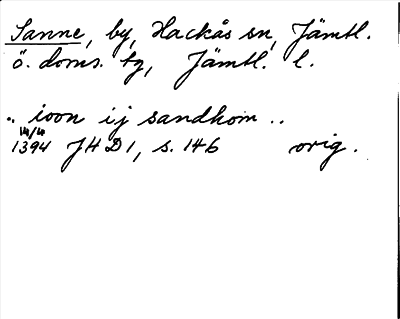 Sanne, by, Hackås sn, Jämtl.
ö. doms. tg, Jämtl. l.
.. ioon ij sandhom ..
14/4
1394 JHD1, s. 146 orig.